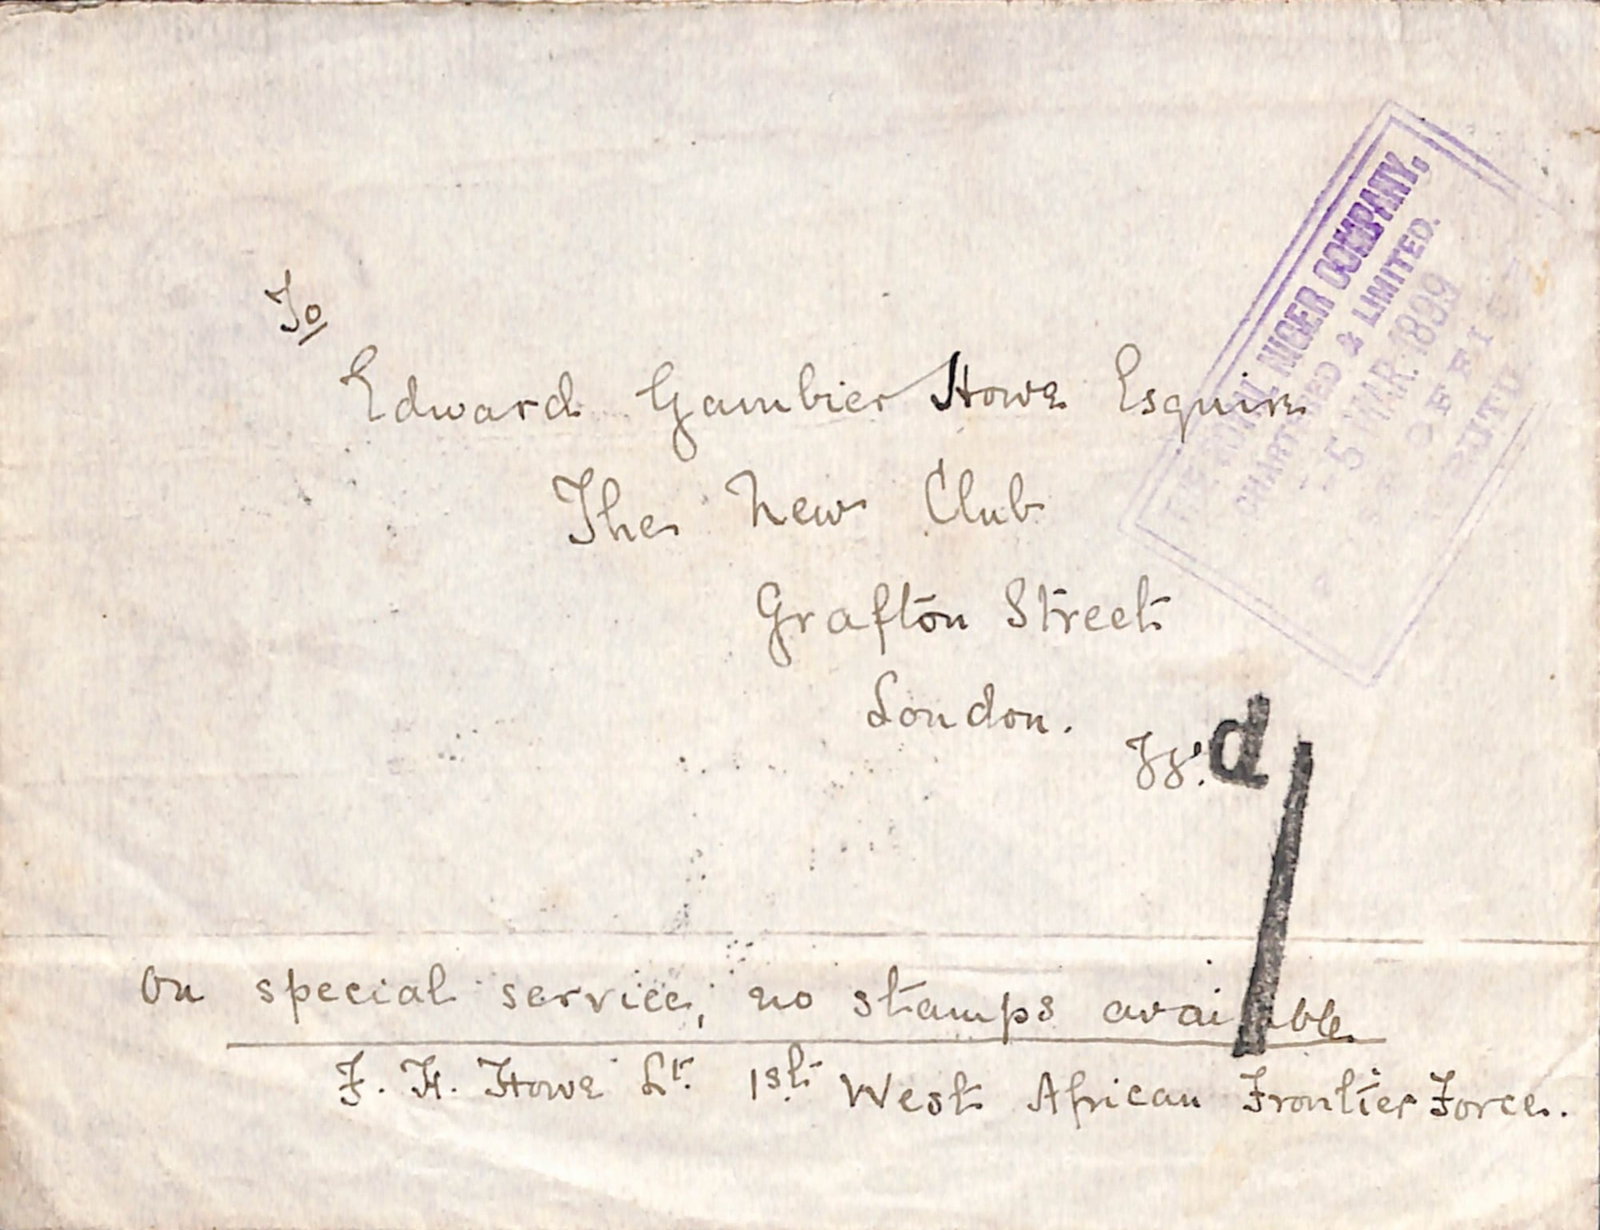 To
Edward Gambier Howe Esquire
The New Club
Grafton Street
London.
d
1
On special service, no stamps available
F. H. Howe Lt. 1st West African Frontier Force.
THE ROYAL NIGER COMPANY,
CHARTERED & LIMITED.
-5 MAR. 1899
POST OFFICE
BURUTU